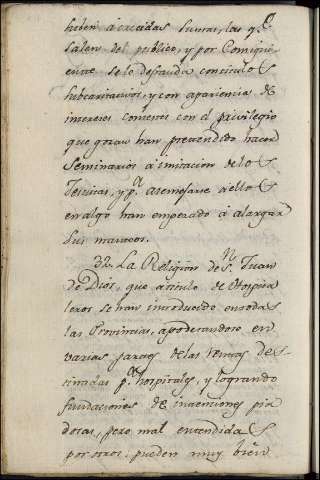 hiben á crecidas sumas, las q.e
salen del publico, y por Consiguiente
se lo defrauda con titulos
y con apariencia de
intereses con el privilegio
que gozan han pretendido hacer
Seminarios á imitacion de los
Jesuitas, y p.r asemejarse a ellos
en algo han empezado á alargar
sus manteos.
32. La Religion de S.n Juan
de Dios, que a titulo de Hospita
leros se han introducido en todas
las Provincias, apoderandose en
varias partes de las rentas des-
tinadas p.a hospitales, y logrando
fundaciones de intenciones pia
dosas, pero mal entendidas
por otros, pueden muy bien